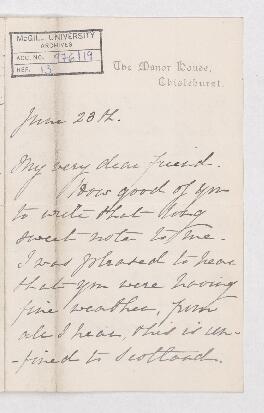 McGILL UNIVERSITY
ARCHIVES
ACC. NO. 976/19
REF. 13
The Manor House,
Chislehurst.
June 23th.
My very dear friend.
How good of you
to write that long
sweet note to me.
I was pleased to hear
that you were having
fine weather, from
all I hear, this is un-
-fined to Scotland.